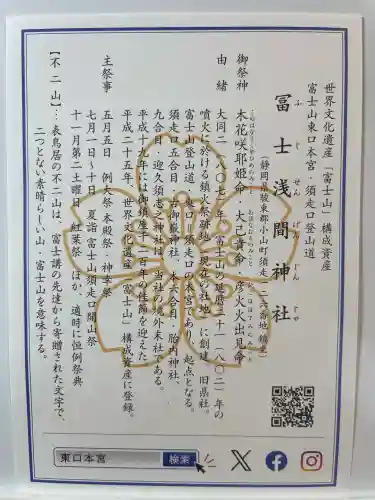 世界文化遺産「富士山」構成資産
富士山東口本宮・須走口登山道
冨士浅間神社
ふじせんげんじんじゃ
(静岡県駿東郡小山町須走 二六番地 鎮座)
御祭神
木花咲耶姫命・大己貴命・彦火火出見命
このはなさくやひめのみこと おほなむちのみこと ひこほほでみのみこと
由緒
大同二(八〇七)年、富士山の延暦二十一(八〇二)年の
噴火に於ける鎮火祭跡地(現在の社地)に創建。旧県社。
富士山登山道・東口=須走口の本宮であり、起点となる。
須走口五合目・古御嶽神社、本六合目・胎内神社、
九合目・迎久須志之神社は、当社の境外末社である。
平成十九年には御鎮座千二百年の佳節を迎えた。
平成二十五年、世界文化遺産「富士山」構成資産に登録。
主祭事
五月五日 例大祭 本殿祭・神幸祭
七月一日~十日 夏詣 富士山須走口開山祭
十一月第二土曜日 紅葉祭 ほか、適時に恒例祭典
【不二山】…表鳥居の不二山は、富士講の先達から寄贈された文字で、
二つとない素晴らしい山・富士山を意味する。
東口本宮 検索